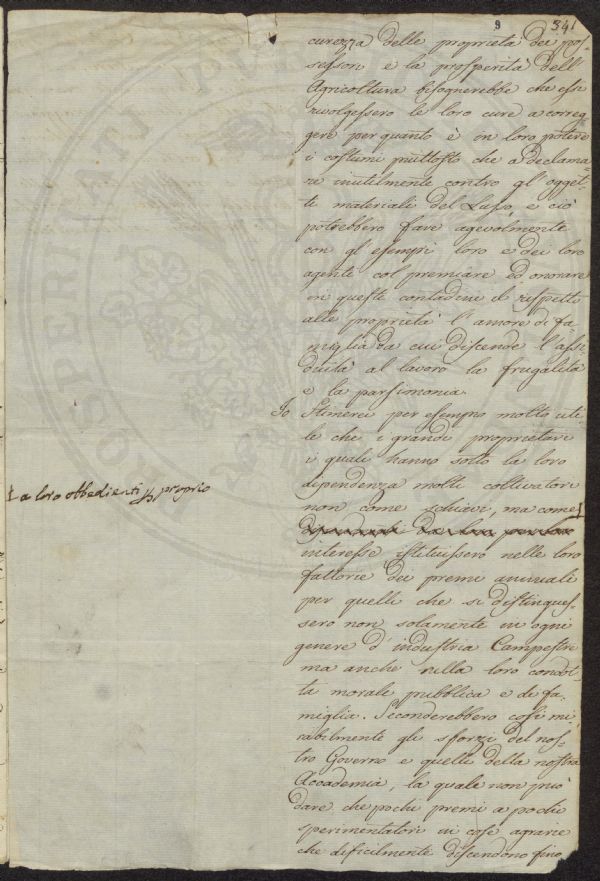 9 341
curezza delle proprietà dei pos-
sessori e la prosperità dell'
Agricoltura bisognerebbe che essi
rivolgessero le loro cure a correg-
gere per quanto è in loro potere
i costumi piuttosto che a declama-
re inutilmente contro gl'ogget-
ti materiali del Lusso, e ciò
potrebbero fare agevolmente
con gl'esempi loro e dei loro
agenti col premiare ed onorare
in questi contadini il rispetto
alle proprietà l'amore di fa-
miglia da cui discende l'assi-
duità al lavoro la frugalità
e la parsimonia.
Io Stimerei per esempio molto uti-
le che i grandi proprietarj
i quali hanno sotto la loro
dipendenza molti coltivatori
non come schiavi, ma come
a loro obbedienti proprio
interesse istituissero nelle loro
fattorie dei premi annuali
per quelli che si distingues-
sero non solamente in ogni
genere d'industria Campestre
ma anche nella loro condot-
ta morale pubblica e di fa-
miglia. Seconderebbero così mi-
rabilmente gli sforzi del nos-
tro Governo e quelli della nostra
Accademia, la quale non può
dare che pochi premi a pochi
sperimentatori in cose agrarie
che dificilmente discendono fino